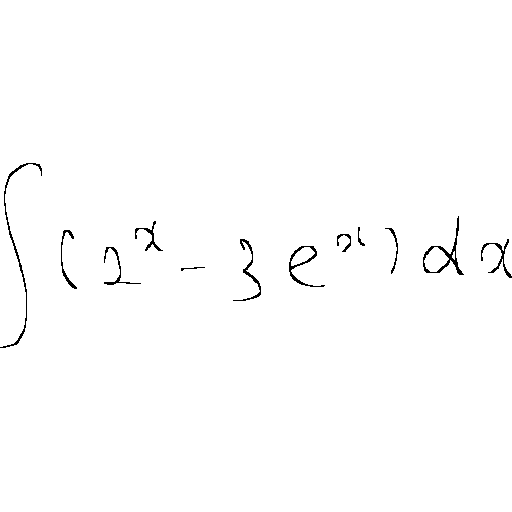 ∫(2ˣ - 3eˣ)dx